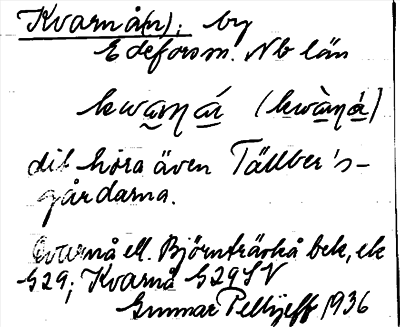 Kvarnå(n); by
Edeforsm. Nb län
kwaṃŋ á (kwàṃŋ á)
dit höra även Tällber's-
gårdarna.
Kvarnå ell. Björnträskå bek, ek
S29; Kvarnå S29SV
Gunnar Pellijeff 1936